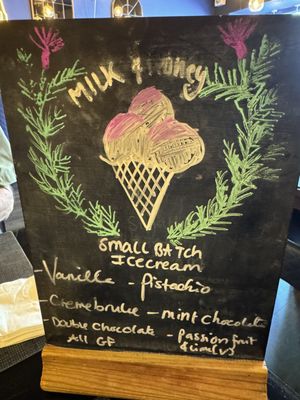 MILK & Honey
SMALL BATCH
ICECREAM
- Vanilla - Pistachio
- Cremebrulee - mint chocolate
- Double Chocolate - Passion fruit
All GF & lime (v)